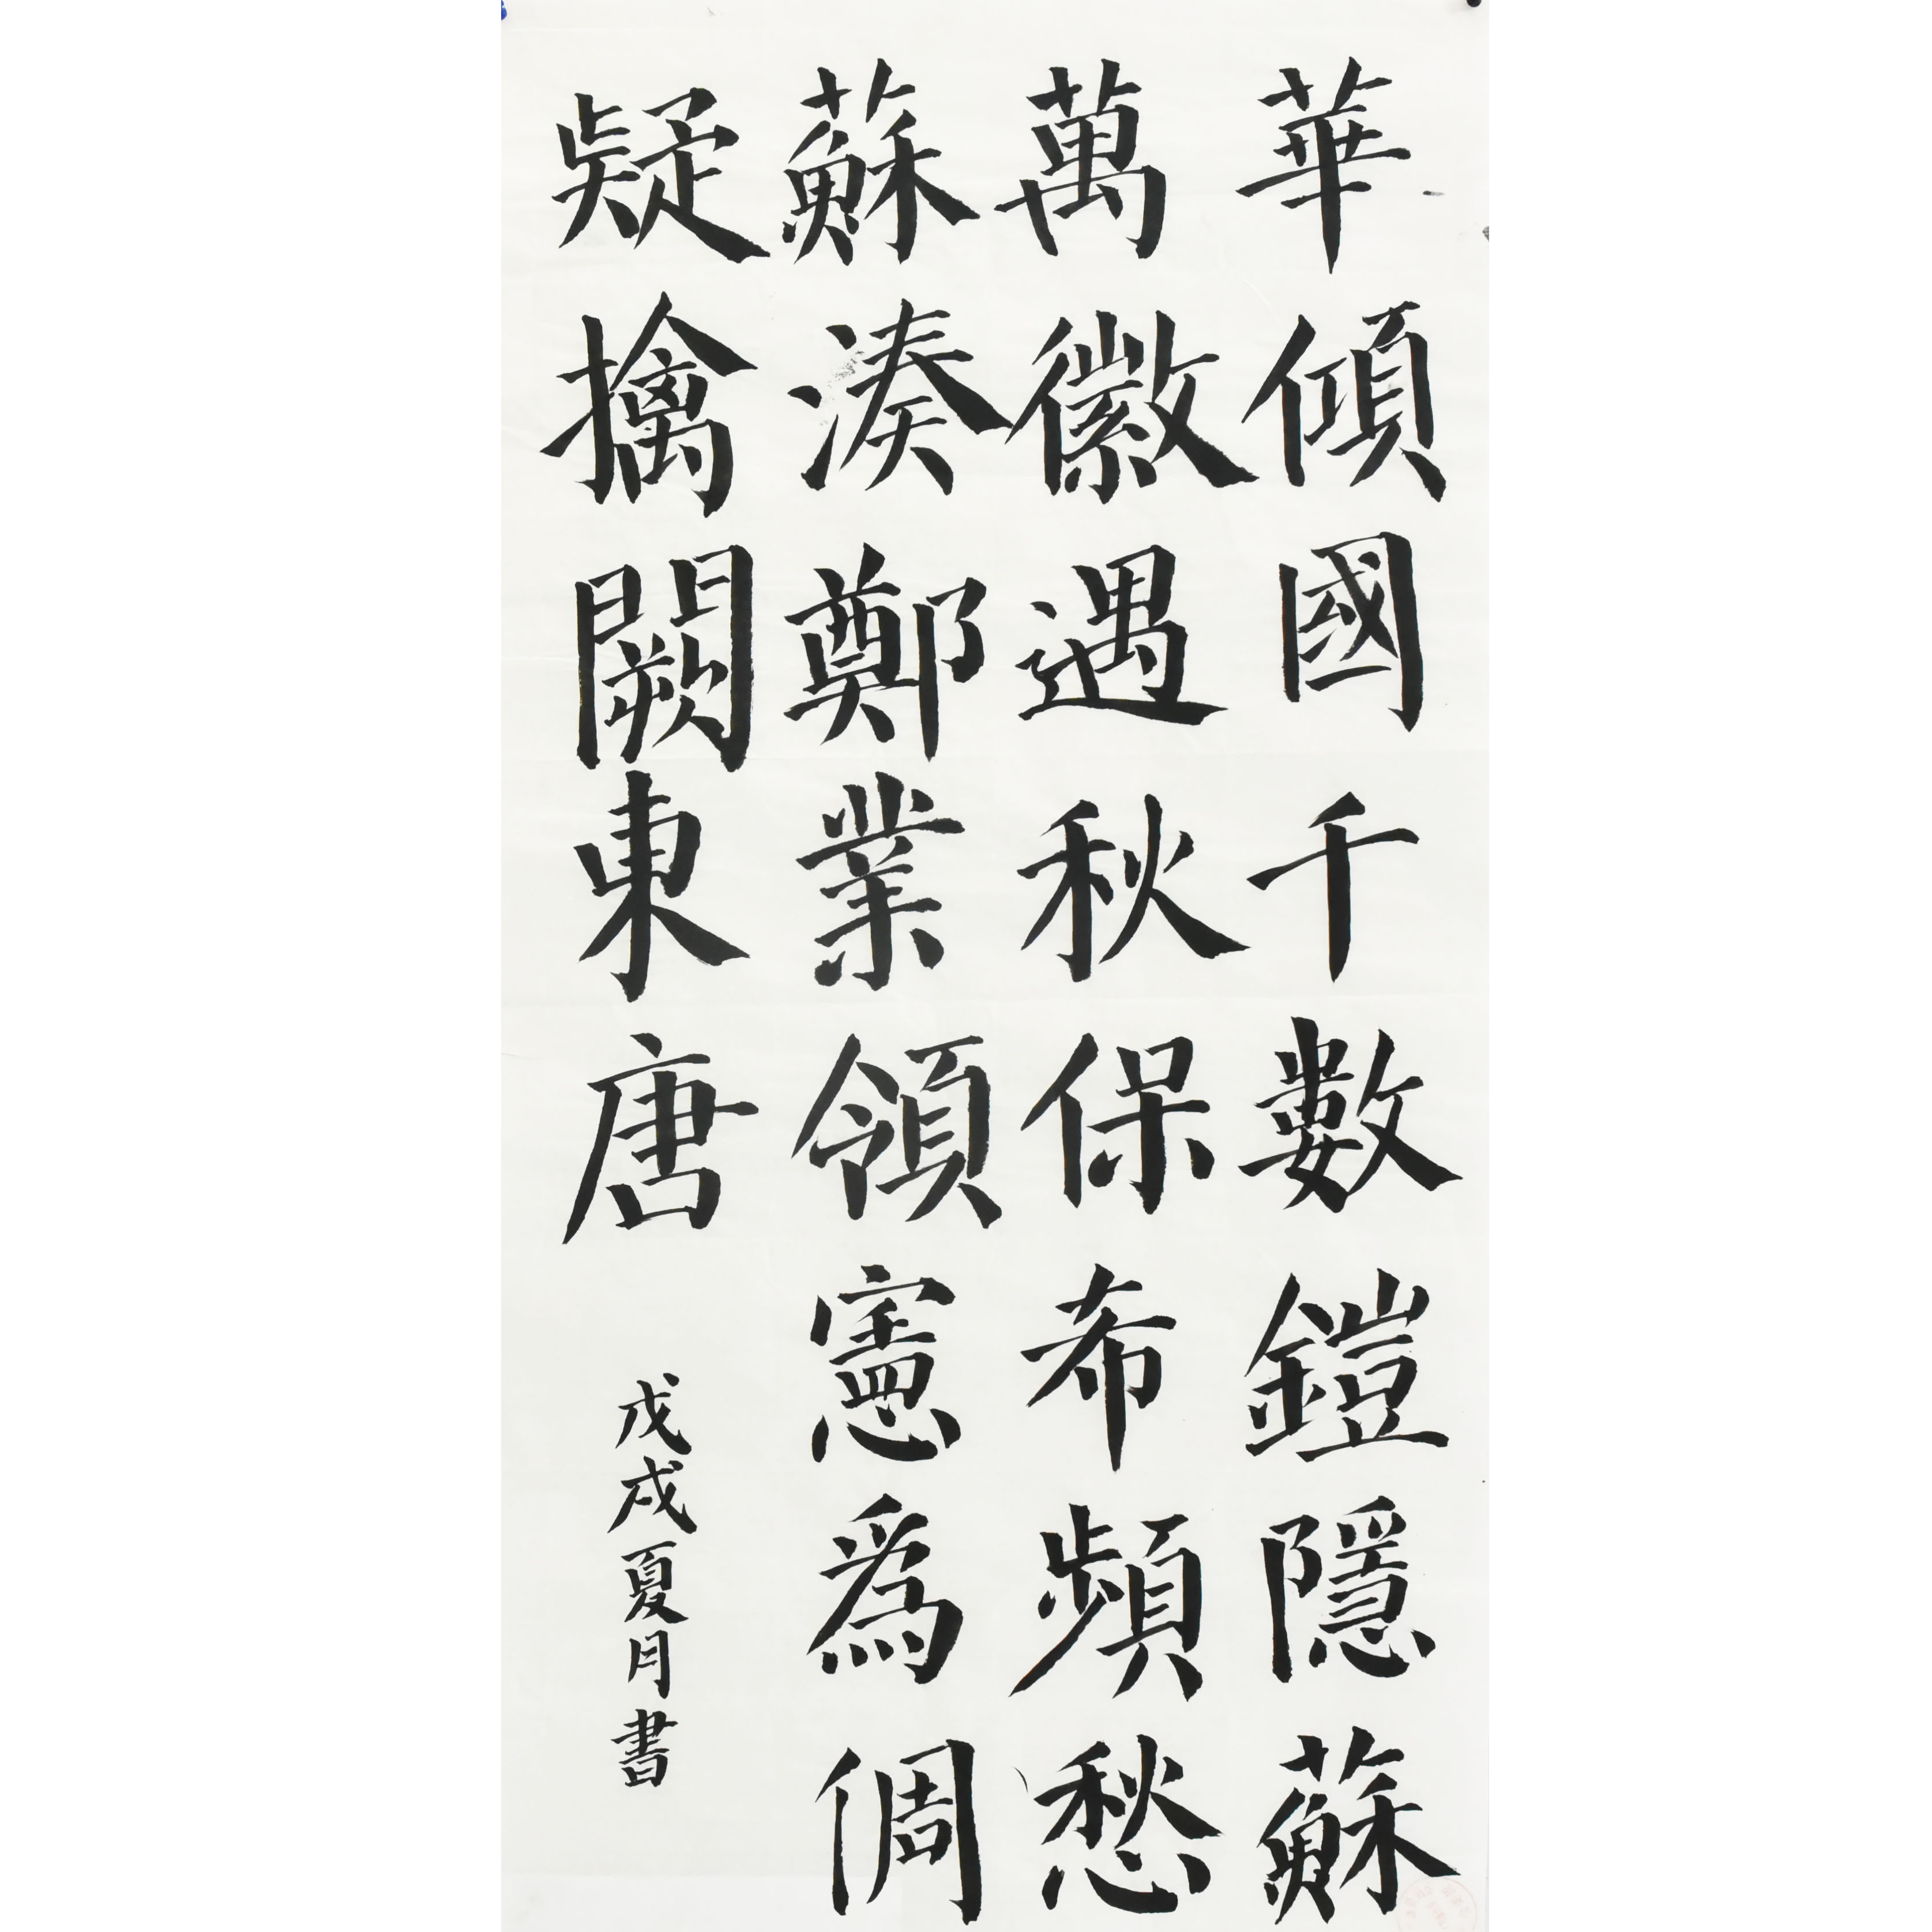 華傾國千數鎧隱蘇
萬徽遇秋保希頻愁
蘇湊鄭業領憲為倜
疑擒闕東唐
戊戌夏月書